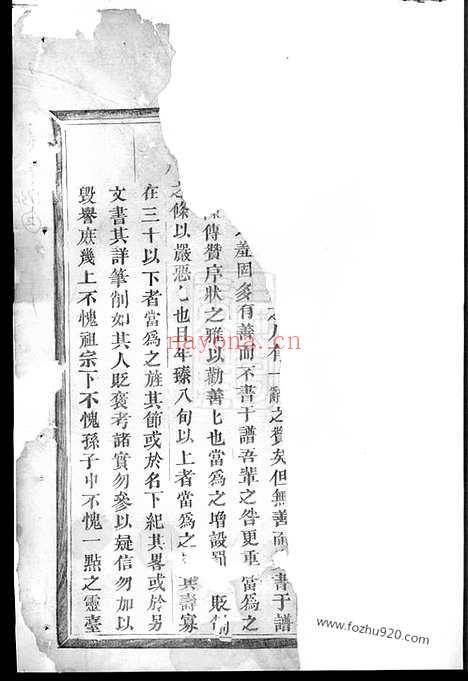 之人有一辭之贊矣但無善而書于譜
羞固多有善而不書于譜吾輩之咎更重當爲之
傳贊序狀之雅以勸善也當爲之增設貶
之條以嚴惡也曰年臻八旬以上者當爲之其壽寡
在三十以下者當爲之旌其節或於名下紀其畧或於另
文書其詳筆削如其人貶褒考諸實勿參以疑信勿加以
毀譽庶幾上不愧祖宗下不愧孫子中不愧一點之靈臺
nayona.cn
www.fozhu920.com